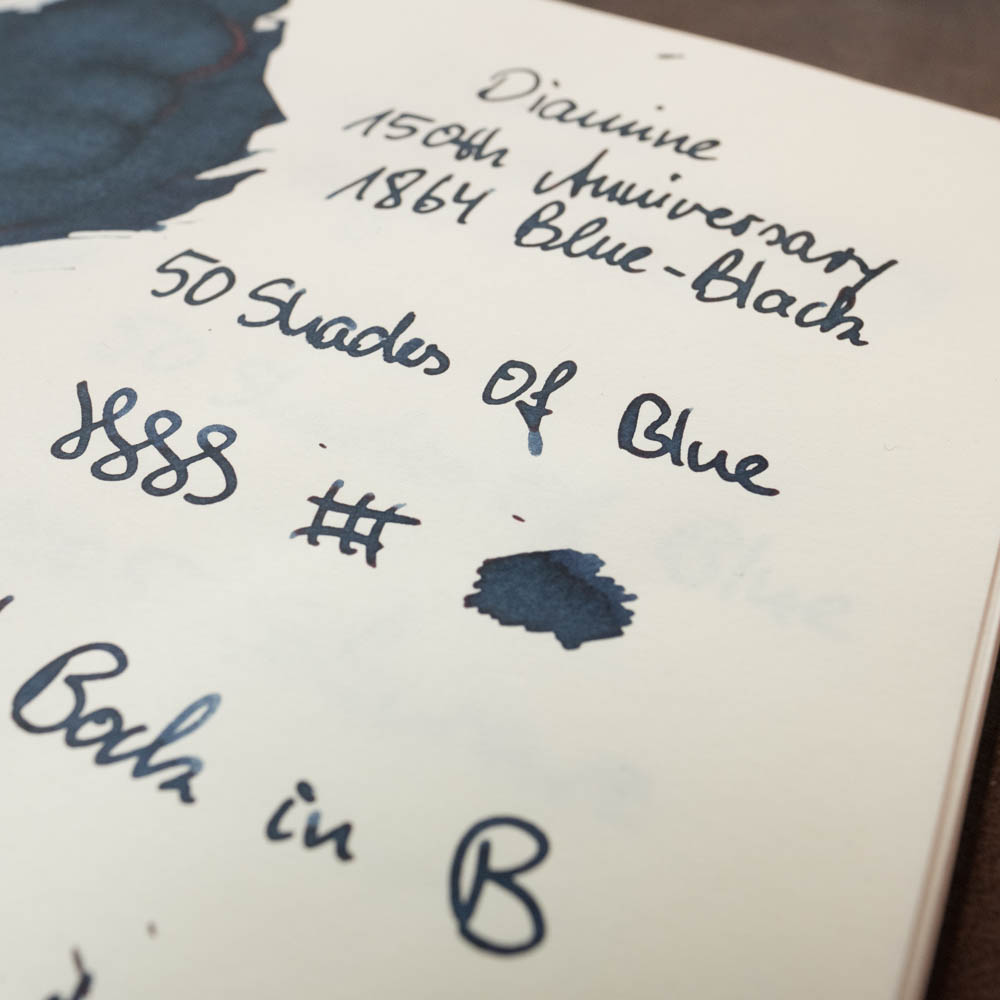 Diamine
150th Anniversary
1864 Blue-Black
50 Shades Of Blue
Bock in B